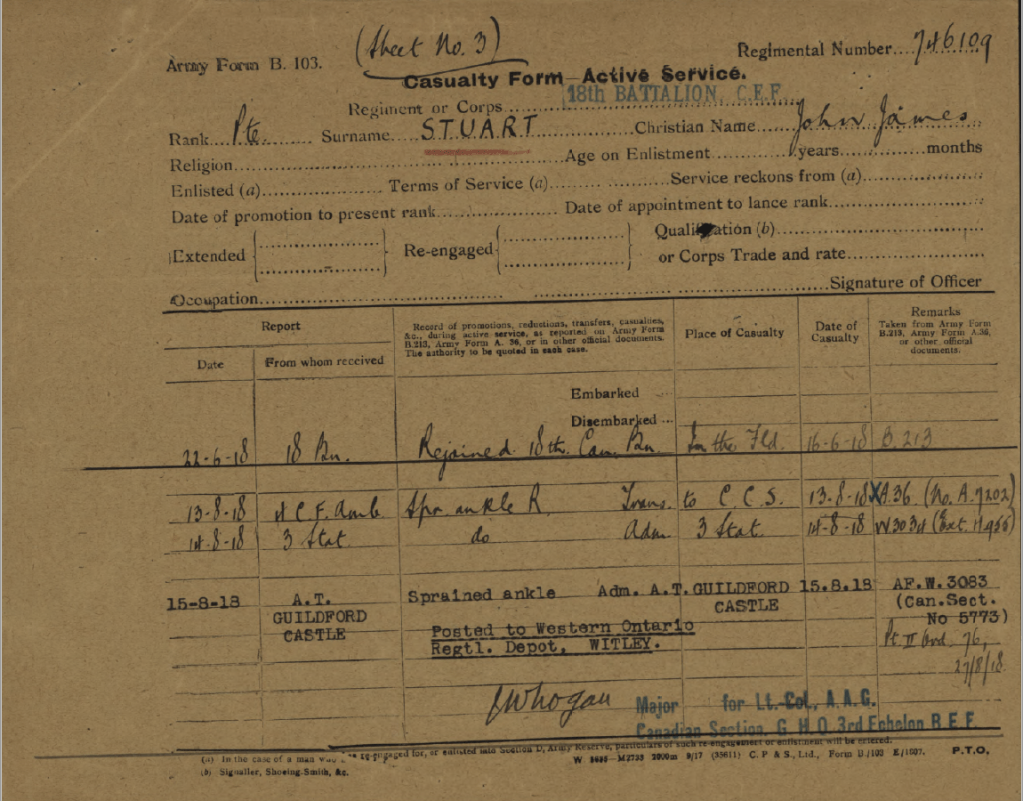 (Sheet No. 3)
Army Form B. 103.
Regimental Number....746109
Casualty Form—Active Service.
Regiment or Corps 18th BATTALION, C.E.F.
Rank Pte. Surname STUART Christian Name John James
Religion Age on Enlistment years months
Enlisted (a) Terms of Service (a) Service reckons from (a)
Date of promotion to present rank Date of appointment to lance rank
Extended Re-engaged Qualification (b)
or Corps Trade and rate
Occupation Signature of Officer
Report
Date
From whom received
Record of promotions, reductions, transfers, casualties,
&c., during active service, as reported on Army Form
B.213, Army Form A. 36, or in other official documents.
The authority to be quoted in each case.
Place of Casualty
Date of
Casualty
Remarks
Taken from Army Form
B.213, Army Form A.36,
or other official
documents.
Embarked
Disembarked ...
22-6-18 18 Bn. Rejoined 18th. Can. Bn. In the Fld. 16-6-18 B.213
13-8-18 4 C.F. Amb. Spr. ankle R. Trans. to C C S. 13-8-18 X A.36 (No. A.7202)
14-8-18 3 Stat do Adm. 3 Stat. 14-8-18 W3034 (Ext.
15-8-18 A.T. GUILDFORD CASTLE Sprained ankle Adm. A.T. GUILDFORD CASTLE 15.8.18 AF.W.3083
(Can.Sect.
No 5773)
Posted to Western Ontario
Regtl. Depot, WITLEY.
Pt. II Ord. 76,
27/8/18.
Major for Lt.-Col, A.A.G.
Canadian Section, G H Q 3rd Echelon B.E.F.
(a) In the case of a man who has re-engaged for, or enlisted into Section D, Army Reserve, particulars of such re-engagement or enlistment will be entered.
(b) Signaller, Shoeing-Smith, &c.
W 8695—M2733 2000m 9/17 (35611) C. P & S., Ltd., Form B./103 E/1607. P.T.O.